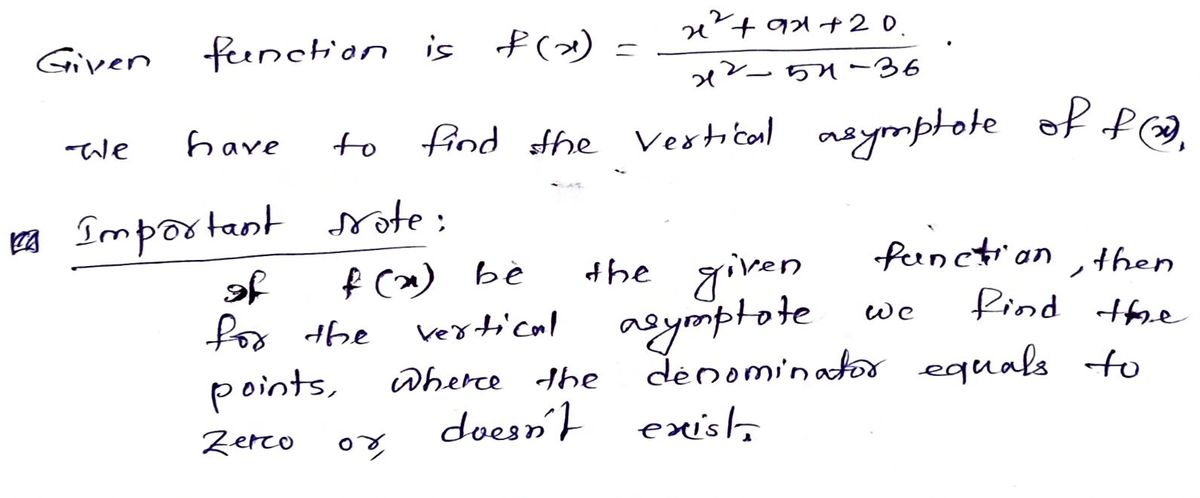 Given function is f(x) = x²+9x+20. / x²-5x-36 .
We have to find the vertical asymptote of f(x),
Important Note:
If f(x) be the given function, then
for the vertical asymptote we find the
points, where the denominator equals to
zero or, doesn't exist.